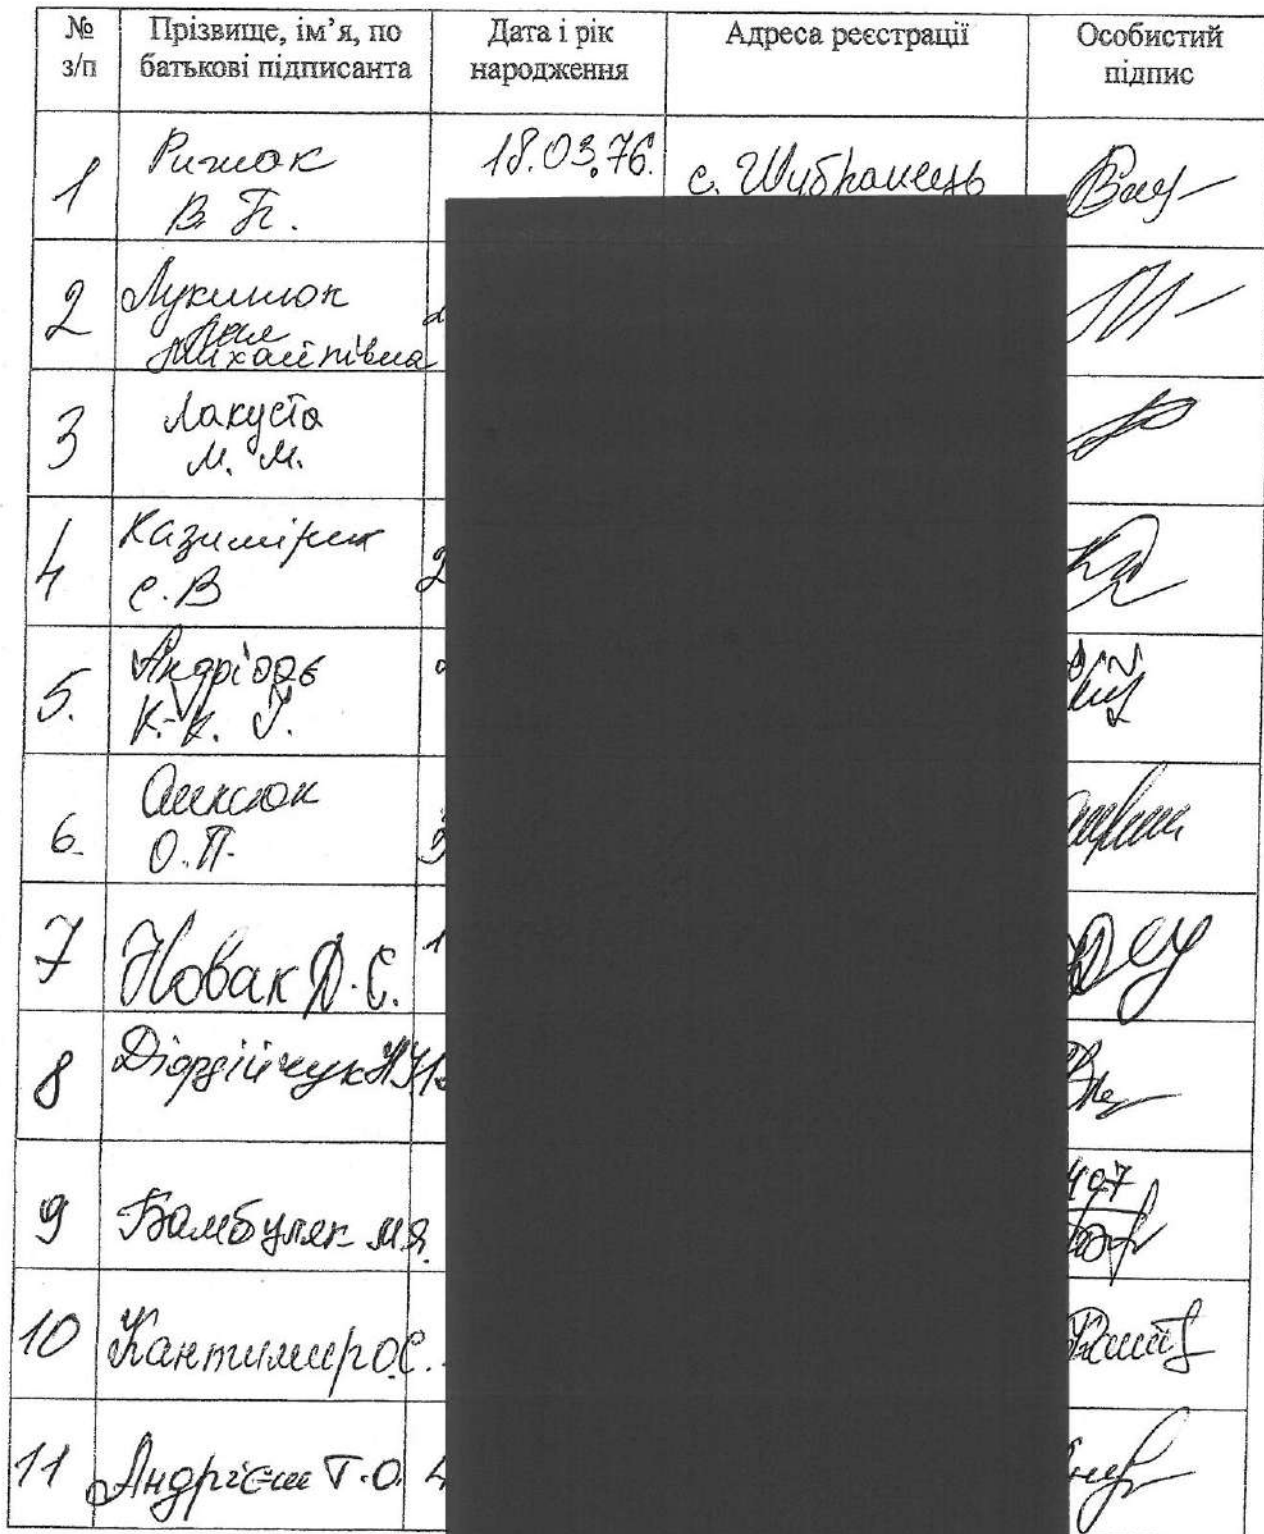 № з/п
Прізвище, ім’я, по батькові підписанта
Дата і рік народження
Адреса реєстрації
Особистий підпис
1 Рижок 18.03.76. с. Шубранець
В. П.
2 Лукинюк
Михайлівна
3 Лакуста
М. М.
4 Казимірик 2
С. В
5.
К.-К. Г.
6. Олексюк
О. П.
7 Новак Д. С. 1
8 Діордійчук
9 Бамбуляк М.Я.
10 Кантимир О.С.
11 Андрієш Т.О. 4